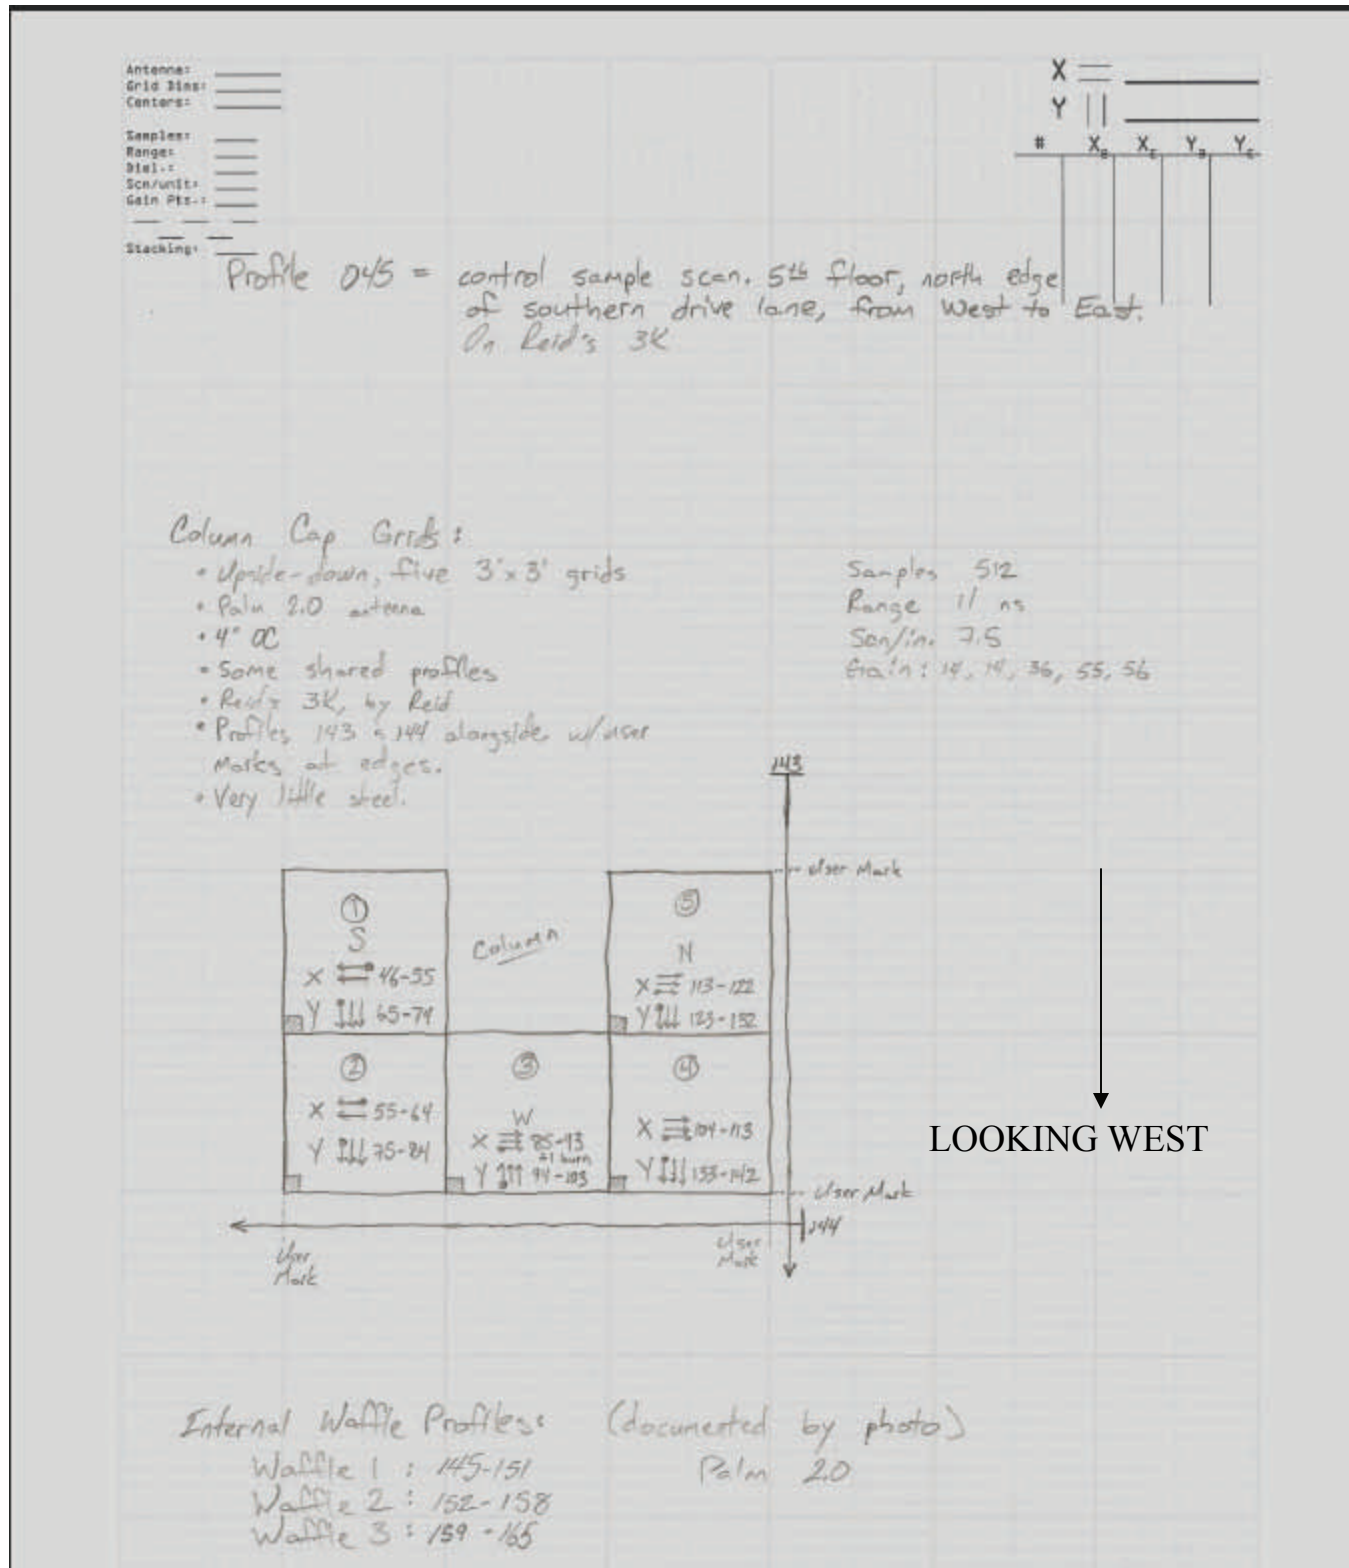 Antenna:
Grid Bins:
Centers:
Samples:
Range:
Diel.:
Scn/unit:
Gain Pts.:
Stacking:
X
Y
# X_B X_E Y_B Y_E
Profile 045 = control sample scan. 5th floor, north edge
of southern drive lane, from West to East.
On Reid's 3K
Column Cap Grids:
• Upside-down, five 3'x3' grids
• Palm 2.0 antenna
• 4" OC
• Some shared profiles
• Reid's 3K, by Reid
• Profiles 143 & 144 alongside w/user
marks at edges.
• Very little steel.
Samples 512
Range 11 ns
Scn/in. 7.5
Gain: 14, 14, 36, 55, 56
143
User Mark
① ⑤
S Column N
X 46-55 X 113-122
Y 65-74 Y 123-132
② ③ ④
X 55-64 W X 104-113
Y 75-84 X 85-93 Y 133-142
+1 burn
Y 94-103
LOOKING WEST
User Mark
144
User
Mark
User
Mark
Internal Waffle Profiles: (documented by photo)
Waffle 1 : 145-151 Palm 2.0
Waffle 2 : 152-158
Waffle 3 : 159-165